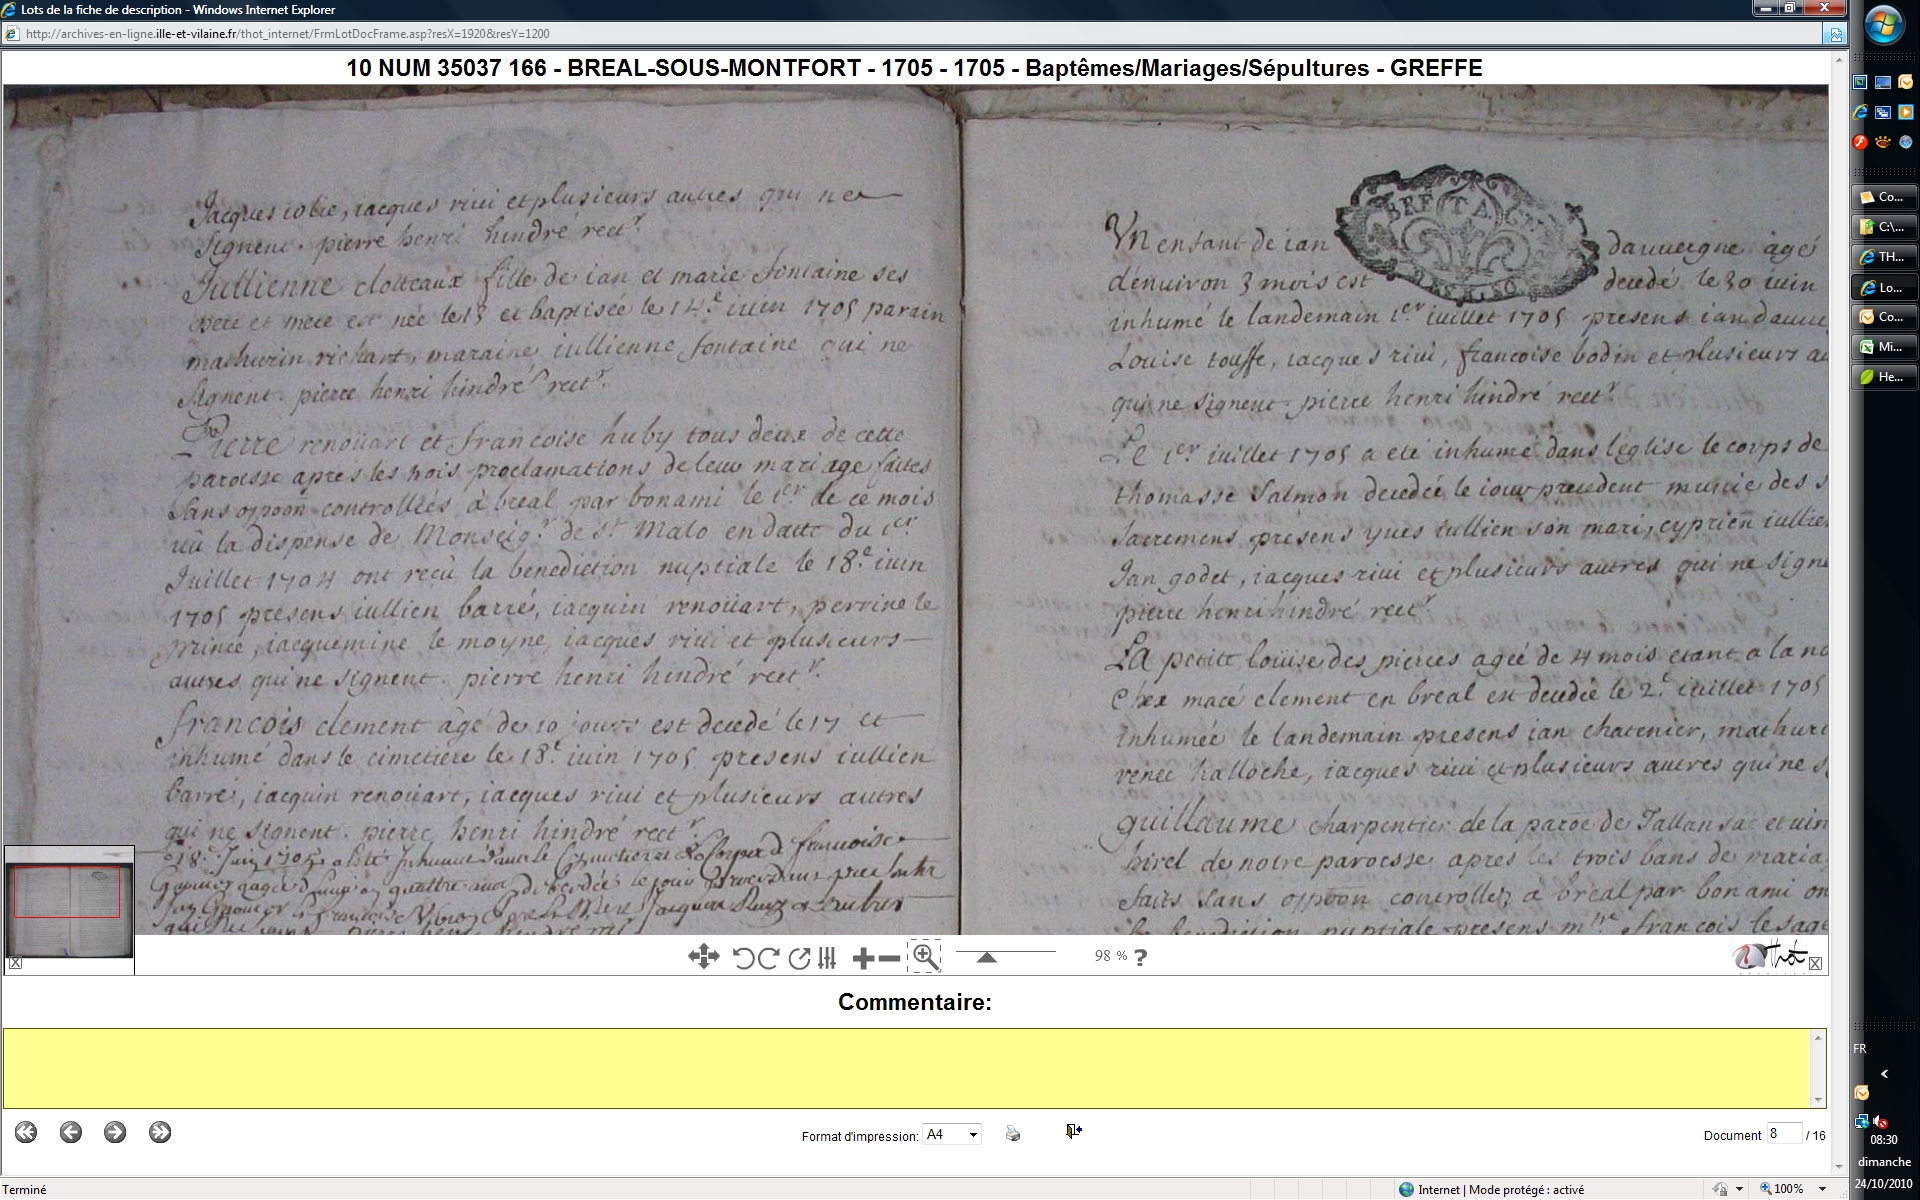 Lots de la fiche de description - Windows Internet Explorer
http://archives-en-ligne.ille-et-vilaine.fr/thot_internet/FrmLotDocFrame.asp?resX=1920&resY=1200
10 NUM 35037 166 - BREAL-SOUS-MONTFORT - 1705 - 1705 - Baptêmes/Mariages/Sépultures - GREFFE
Jacques iolie, iacques riui et plusieurs autres qui ne
signent. pierre henri hindré rectr.
Jullienne clotteaux fille de ian et marie fontaine ses
pere et mere est née le 13 et baptisée le 14e iuin 1705 parain
mathurin richart, maraine iullienne fontaine qui ne
signent. pierre henri hindré rectr.
Pierre renoüart et francoise huby tous deux de cette
paroesse apres les trois proclamations de leur mariage faites
sans oppoon controllées à breal par bonami le 1er de ce mois
uû la dispense de Monseigr de st Malo en datte du 1er
Juillet 1704 ont reçû la benediction nuptiale le 18e iuin
1705 presens iullien barré, iacquin renoüart, perrine le
prince, iacquemine le moyne, iacques riui et plusieurs
autres qui ne signent. pierre henri hindré rectr.
francois clement âgé de 10 jours est decedé le 17 et
inhumé dans le cimetiere le 18e iuin 1705 presens iullien
barré, iacquin renoüart, iacques riui et plusieurs autres
qui ne signent. pierre henri hindré rectr.
18e Juin 1705 a esté Inhumé dans le Corps de francoise
agée quattre ans decedée le jour
Jan
BRETAGNE
Vn enfant de ian dauuergne âgé
dénuiron 3 mois est decedé le 30 iuin
inhumé le landemain 1er iuillet 1705 presens ian dauue
Louise touffe, iacques riui, francoise bodin et plusieurs au
qui ne signent. pierre henri hindré rectr.
Le 1er iuillet 1705 a eté inhumé dans l'eglise le corps de
thomasse salmon decedeé le iour precedent munie des s
sacremens presens yues iullien son mari, cyprien iullie
Jan godet, iacques riui et plusieurs autres qui ne signe
pierre henri hindré rectr.
La petite loüise des pierres ageé de 4 mois etant a la no
Chex macé clement en breal est decedée le 2e iuillet 1705
inhumée le landemain presens ian chatenier, mathuri
renee halloche, iacques riui et plusieurs autres qui ne s
guillaume charpentier de la paroe de Tallansac et uin
hirel de notre paroesse apres les trois bans de maria
faits sans oppoon controllez à breal par bonami on
la benediction nuptiale presens mre francois le sage
98 %
?
Thot
Commentaire:
Format d'impression: A4
Document 8 / 16
Terminé
Internet | Mode protégé : activé
100%
Co...
C:\...
TH...
Lo...
Co...
Mi...
He...
FR
08:30
dimanche
24/10/2010